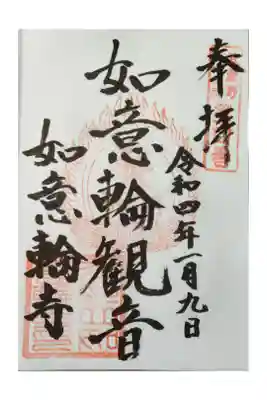 奉拝
令和四年一月九日
如意輪観音
如意輪寺